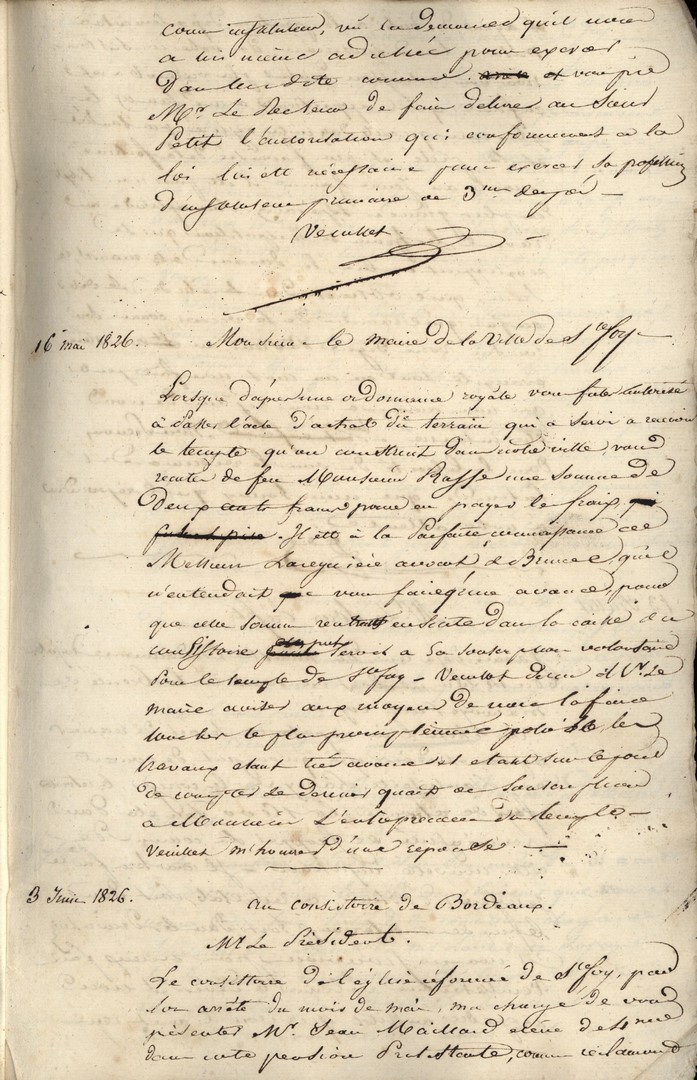 comme instituteur, vu la demande qu'il nous
a lui même adressée pour exercer
dans la dite commune. et vous prie
Mr. Le Recteur de faire délivrer au Sieur
Petit l'autorisation qui conformement a la
loi lui est nécessaire pour exercer sa profession
d'instituteur primaire de 3me degré —
Veuillez.
16 mai 1826. Monsieur le maire de la Ville de Ste foy
Lorsque d'après une ordonnance royale vous futes autorisé
à passer l'acte d'achat du terrain qui a servi a recevoir
le temple qu'on construit dans notre ville, vous
de feu Monsieur Basse une somme de
deux cents francs pour en payer les fraix
. Il est à la Parfaite connaissance de
Messieurs avocat & Brunet, qu'il
n'entendait vous faire qu'une avance, pour
que cette somme rentrat ensuite dans la caisse du
consistoire servir a sa souscription volontaire
pour le temple de Ste foy — Veuillez donc Mr. Le
maire aviser aux moyens de nous la faire
toucher le plus promptement possible les
travaux etant très avancés et etant sur le point
de compter le dernier quart de souscription
a Monsieur L'entrepreneur du temple —
Veuillez m'honorer d'une réponse —
3 Juin 1826. au consistoire de Bordeaux.
Mr. Le Président.
Le consistoire de l'église réformée de Ste foy, par
son arrêté du mois de mai, ma chargé de vous
présenter Mr. Jean Maillard élève de 4me
dans cette pension Protestante, comme